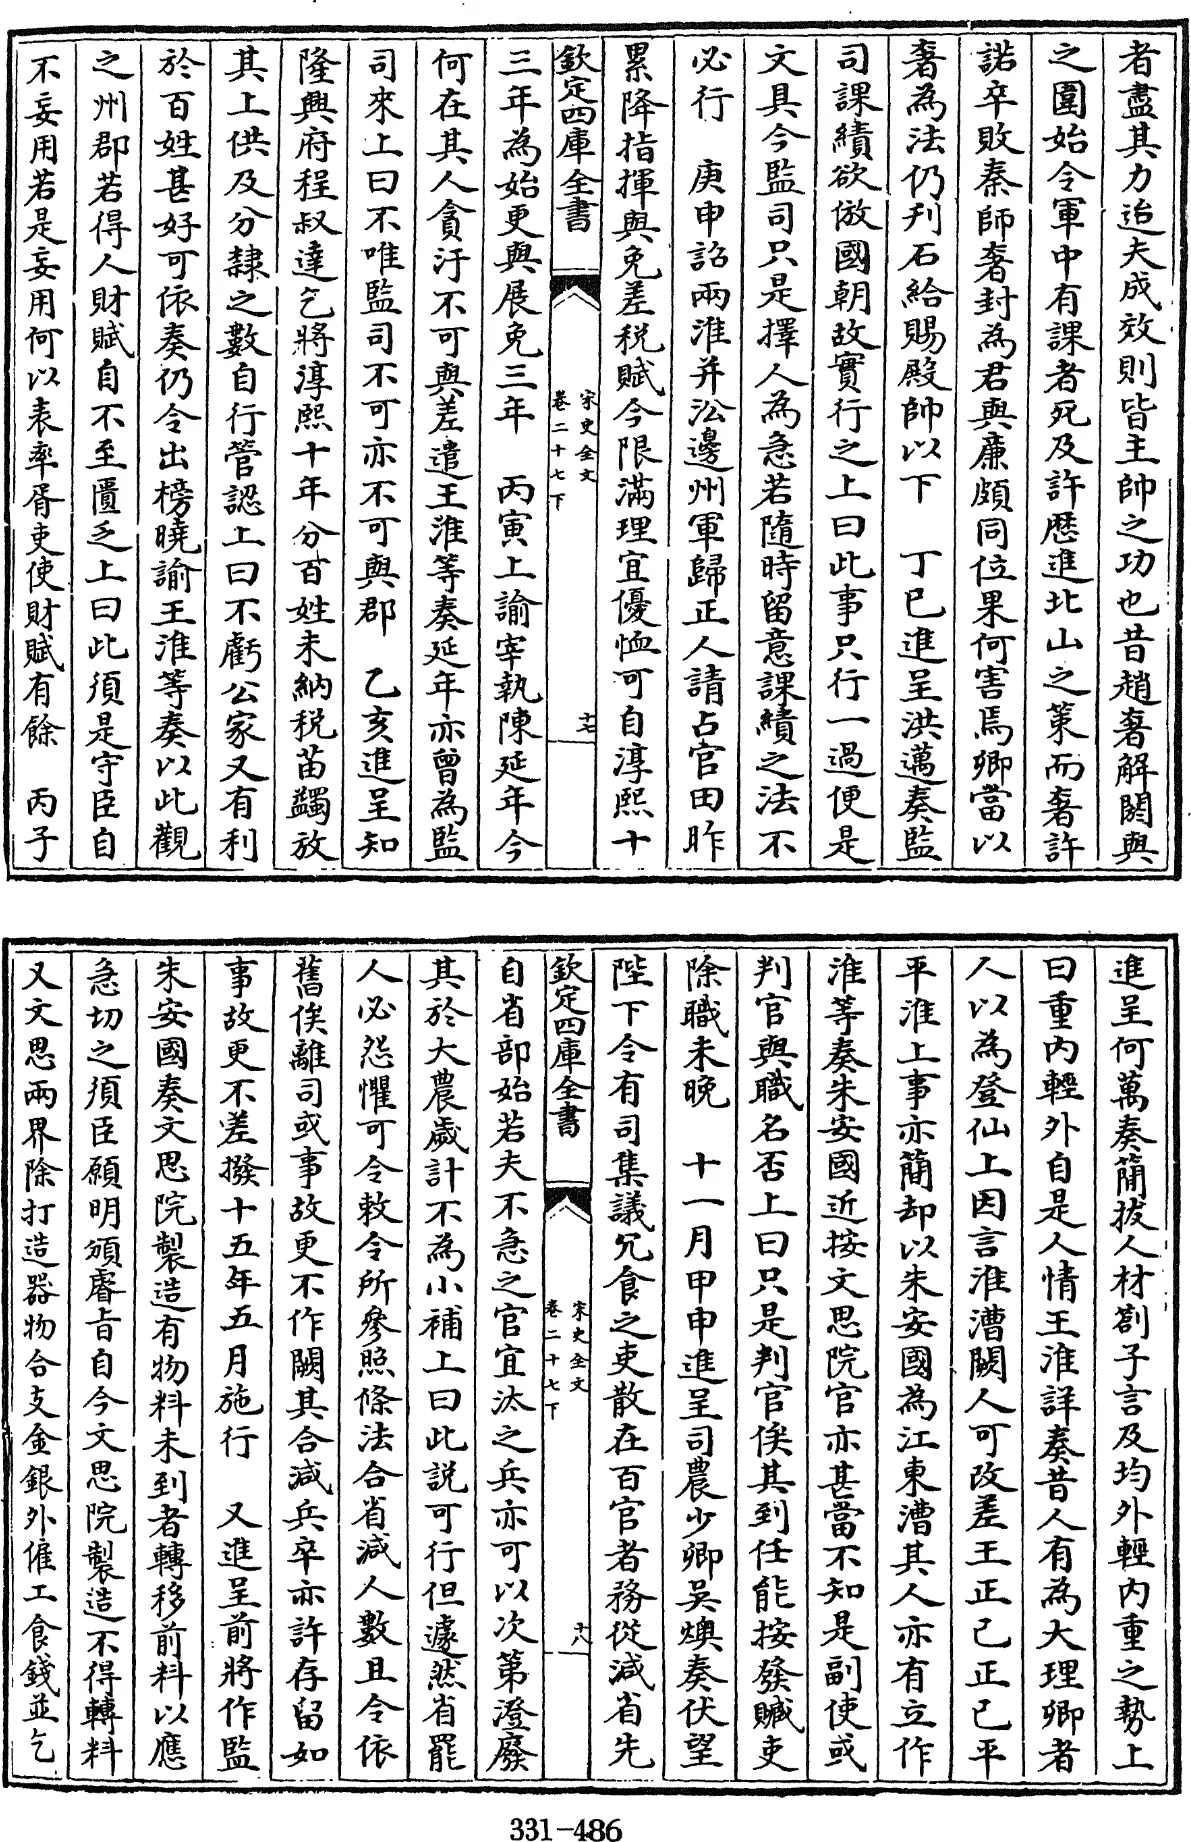 者盡其力迨夫成效則皆主帥之功也昔趙奢解閼與
之圍始令軍中有諫者死及許歷進北山之策而奢許
諾卒敗秦師奢封為君與廉頗同位果何害焉卿當以
奢為法仍刋石給賜殿帥以下　丁巳進呈洪邁奏監
司課績欲倣國朝故實行之上曰此事只行一過便是
文具今監司只是擇人為急若隨時留意課績之法不
必行　庚申詔兩淮并沿邊州軍歸正人請占官田昨
累降指揮與免差税賦今限滿理宜優恤可自淳熙十
欽定四庫全書
宋史全文
卷二十七下
十七
三年為始更與展免三年　丙寅上諭宰執陳延年今
何在其人貪汙不可與差遣王淮等奏延年亦曾為監
司來上曰不唯監司不可亦不可與郡　乙亥進呈知
隆興府程叔達乞將淳熙十年分百姓未納税苗蠲放
其上供及分隸之數自行管認上曰不虧公家又有利
於百姓甚好可依奏仍令出榜曉諭王淮等奏以此觀
之州郡若得人財賦自不至匱乏上曰此須是守臣自
不妄用若是妄用何以表率胥吏使財賦有餘　丙子
進呈何萬奏簡拔人材劄子言及均外輕内重之勢上
曰重内輕外自是人情王淮詳奏昔人有為大理卿者
人以為登仙上因言淮漕闕人可改差王正己正己平
平淮上事亦簡却以朱安國為江東漕其人亦有立作
淮等奏朱安國近按文思院官亦甚當不知是副使或
判官與職名否上曰只是判官俟其到任能按發贓吏
除職未晚　十一月甲申進呈司農少卿吳燠奏伏望
陛下令有司集議冗食之吏散在百官者務從減省先
欽定四庫全書
宋史全文
卷二十七下
十八
自省部始若夫不急之官宜汰之兵亦可以次第澄廢
其於大農歲計不為小補上曰此説可行但遽然省罷
人必怨懼可令敕令所參照條法合省減人數且令依
舊俟離司或事故更不作闕其合減兵卒亦許存留如
事故更不差撥十五年五月施行　又進呈前將作監
朱安國奏文思院製造有物料未到者轉移前料以應
急切之須臣願明頒睿旨自今文思院製造不得轉料
又文思兩界除打造器物合支金銀外僱工食錢並乞
331-486